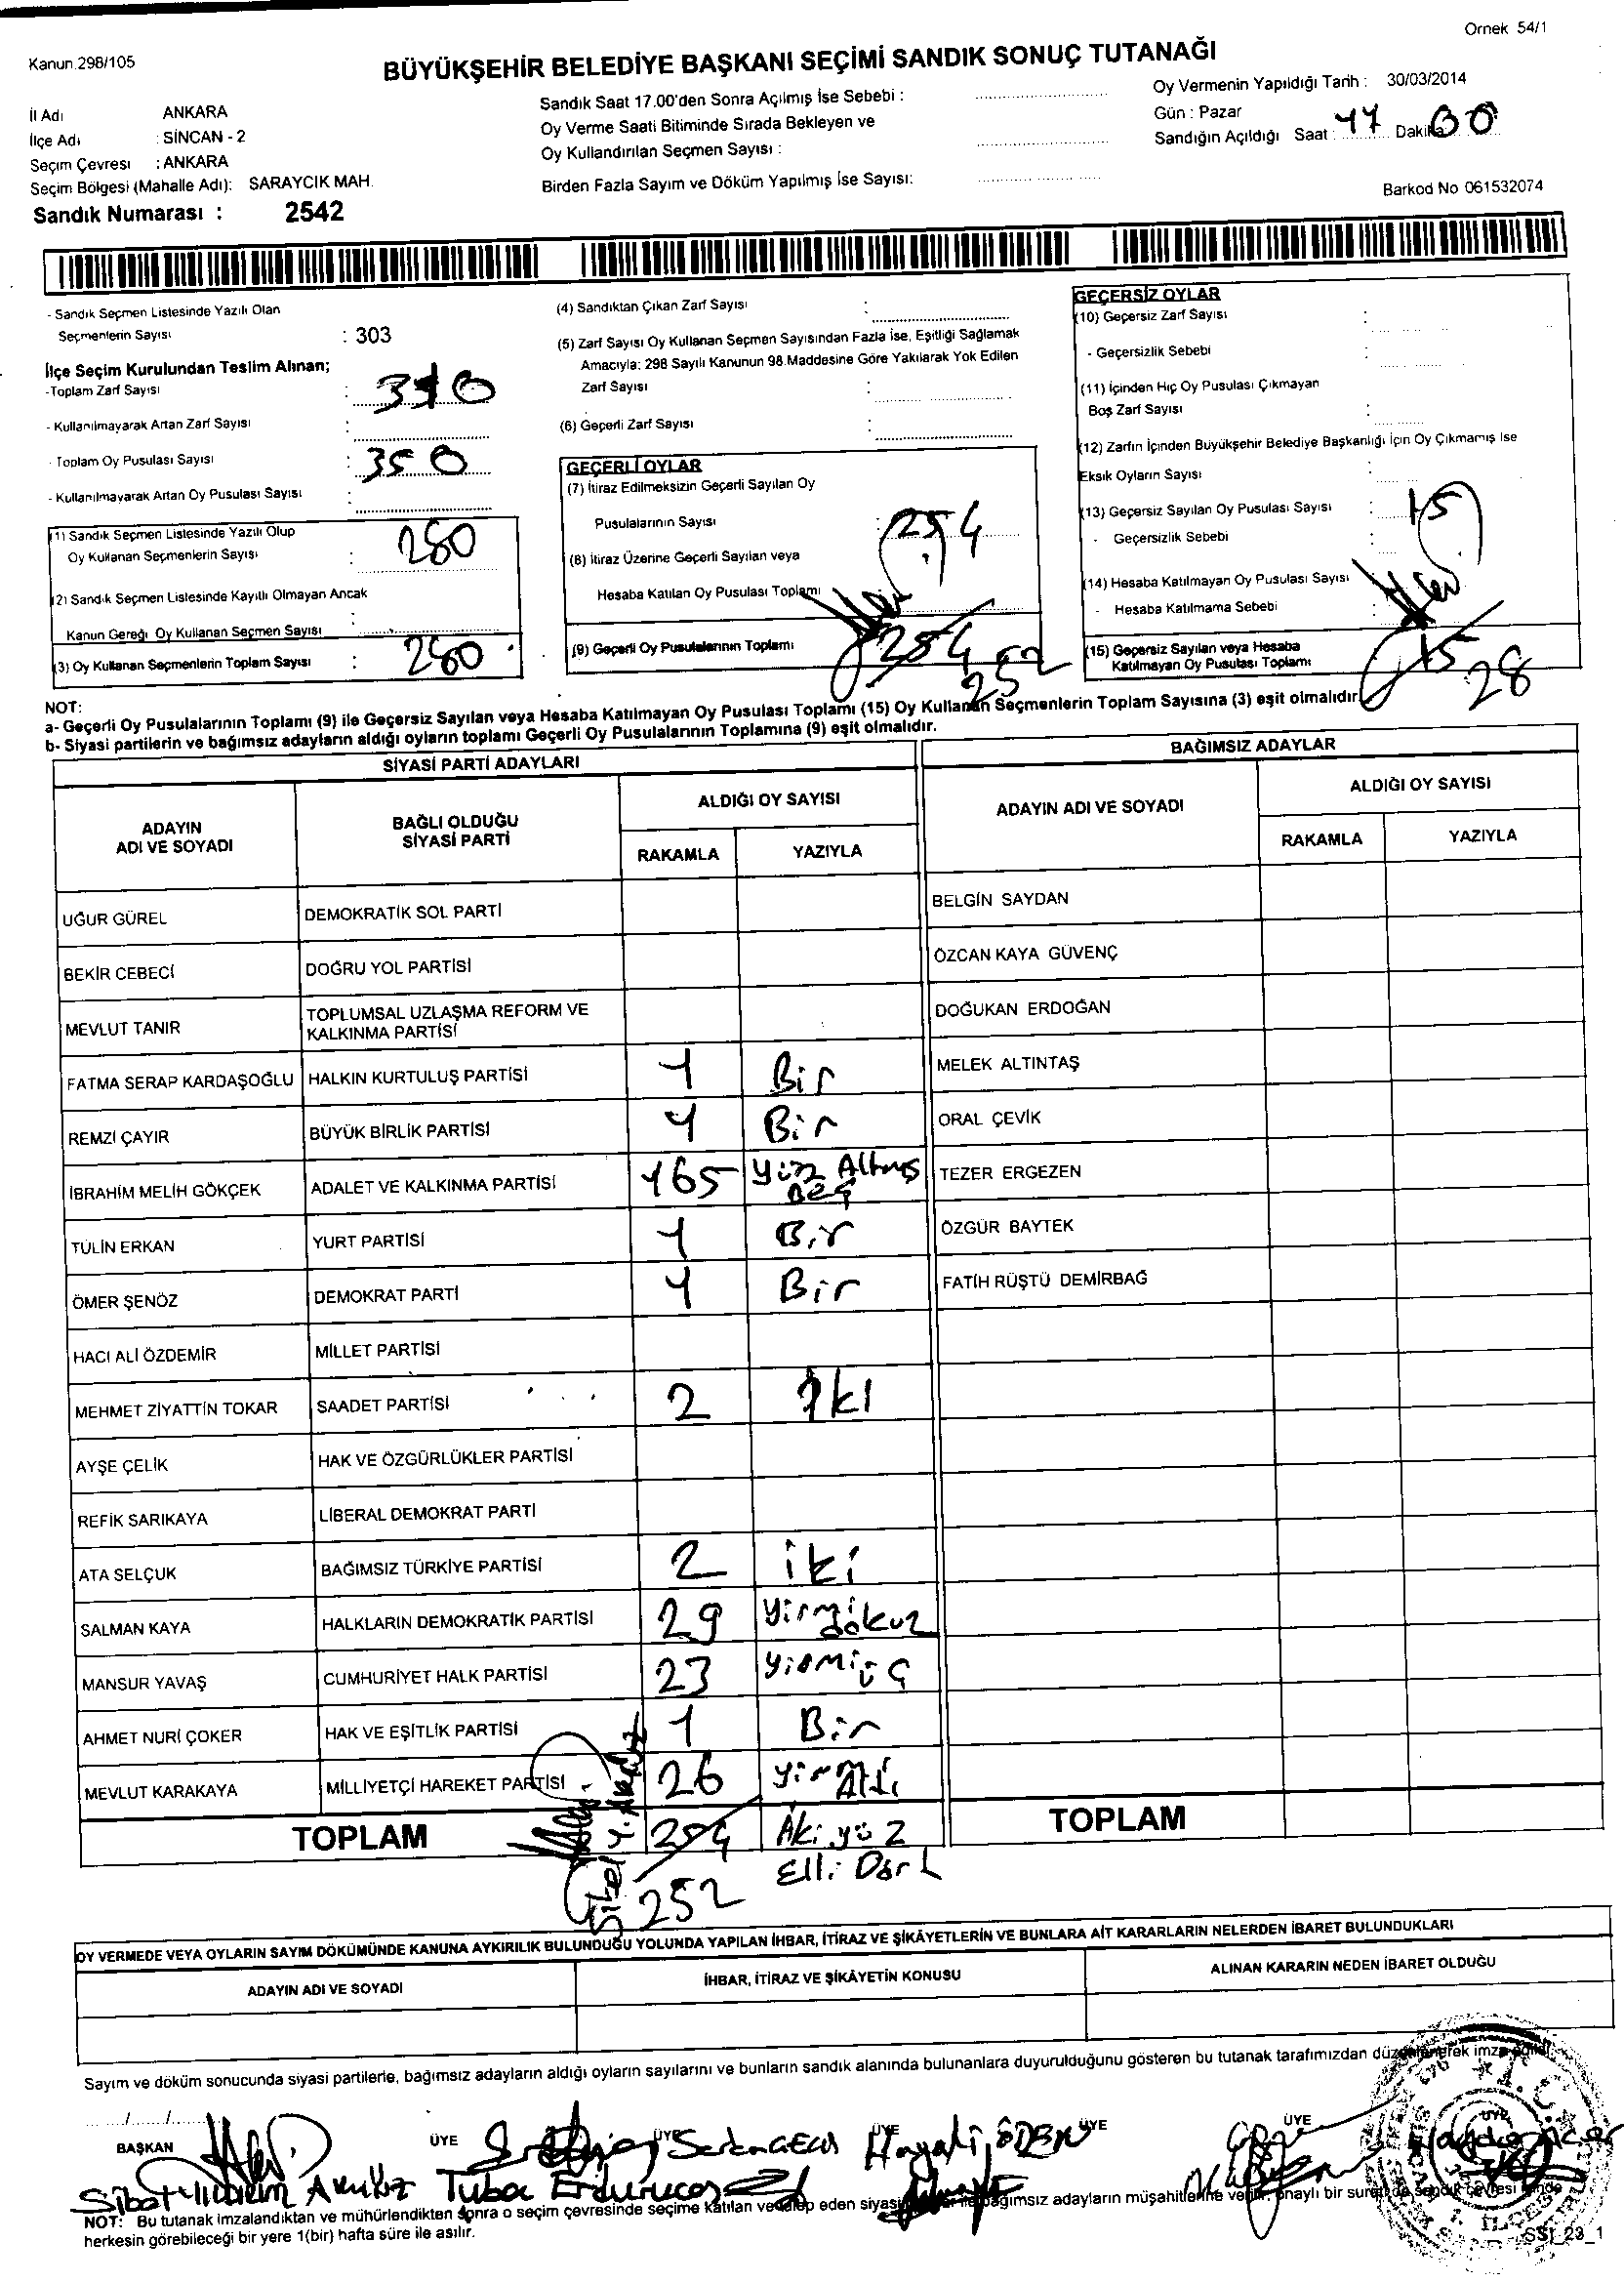 Örnek 54/1
Kanun.298/105
BÜYÜKŞEHİR BELEDİYE BAŞKANI SEÇİMİ SANDIK SONUÇ TUTANAĞI
İl Adı ANKARA
İlçe Adı : SİNCAN - 2
Seçim Çevresi : ANKARA
Seçim Bölgesi (Mahalle Adı): SARAYCIK MAH.
Sandık Numarası : 2542
Sandık Saat 17.00'den Sonra Açılmış İse Sebebi :
Oy Verme Saati Bitiminde Sırada Bekleyen ve
Oy Kullandırılan Seçmen Sayısı :
Birden Fazla Sayım ve Döküm Yapılmış İse Sayısı:
Oy Vermenin Yapıldığı Tarih : 30/03/2014
Gün : Pazar
Sandığın Açıldığı Saat : 17 Dakika 00
Barkod No 061532074
- Sandık Seçmen Listesinde Yazılı Olan
Seçmenlerin Sayısı : 303
İlçe Seçim Kurulundan Teslim Alınan;
-Toplam Zarf Sayısı :
- Kullanılmayarak Artan Zarf Sayısı :
- Toplam Oy Pusulası Sayısı : 350
- Kullanılmayarak Artan Oy Pusulası Sayısı :
(1) Sandık Seçmen Listesinde Yazılı Olup
Oy Kullanan Seçmenlerin Sayısı : 280
(2) Sandık Seçmen Listesinde Kayıtlı Olmayan Ancak
Kanun Gereği Oy Kullanan Seçmen Sayısı :
(3) Oy Kullanan Seçmenlerin Toplam Sayısı : 280
(4) Sandıktan Çıkan Zarf Sayısı :
(5) Zarf Sayısı Oy Kullanan Seçmen Sayısından Fazla İse, Eşitliği Sağlamak
Amacıyla: 298 Sayılı Kanunun 98.Maddesine Göre Yakılarak Yok Edilen
Zarf Sayısı :
(6) Geçerli Zarf Sayısı :
GEÇERLİ OYLAR
(7) İtiraz Edilmeksizin Geçerli Sayılan Oy
Pusulalarının Sayısı : 254
(8) İtiraz Üzerine Geçerli Sayılan veya
Hesaba Katılan Oy Pusulası Toplamı
(9) Geçerli Oy Pusulalarının Toplamı 254 252
GEÇERSİZ OYLAR
(10) Geçersiz Zarf Sayısı :
- Geçersizlik Sebebi :
(11) İçinden Hiç Oy Pusulası Çıkmayan
Boş Zarf Sayısı :
(12) Zarfın İçinden Büyükşehir Belediye Başkanlığı İçin Oy Çıkmamış İse
Eksik Oyların Sayısı :
(13) Geçersiz Sayılan Oy Pusulası Sayısı : 15
- Geçersizlik Sebebi :
(14) Hesaba Katılmayan Oy Pusulası Sayısı
- Hesaba Katılmama Sebebi :
(15) Geçersiz Sayılan veya Hesaba
Katılmayan Oy Pusulası Toplamı 15 28
NOT:
a- Geçerli Oy Pusulalarının Toplamı (9) ile Geçersiz Sayılan veya Hesaba Katılmayan Oy Pusulası Toplamı (15) Oy Kullanan Seçmenlerin Toplam Sayısına (3) eşit olmalıdır.
b- Siyasi partilerin ve bağımsız adayların aldığı oyların toplamı Geçerli Oy Pusulalarının Toplamına (9) eşit olmalıdır.
SİYASİ PARTİ ADAYLARI
ADAYIN ADI VE SOYADI BAĞLI OLDUĞU SİYASİ PARTİ ALDIĞI OY SAYISI
RAKAMLA YAZIYLA
UĞUR GÜREL DEMOKRATİK SOL PARTİ
BEKİR CEBECİ DOĞRU YOL PARTİSİ
MEVLUT TANIR TOPLUMSAL UZLAŞMA REFORM VE KALKINMA PARTİSİ
FATMA SERAP KARDAŞOĞLU HALKIN KURTULUŞ PARTİSİ 1 Bir
REMZİ ÇAYIR BÜYÜK BİRLİK PARTİSİ 1 Bir
İBRAHİM MELİH GÖKÇEK ADALET VE KALKINMA PARTİSİ 165 Yüz Altmış Beş
TÜLİN ERKAN YURT PARTİSİ 1 Bir
ÖMER ŞENÖZ DEMOKRAT PARTİ 1 Bir
HACI ALİ ÖZDEMİR MİLLET PARTİSİ
MEHMET ZİYATTİN TOKAR SAADET PARTİSİ 2 İki
AYŞE ÇELİK HAK VE ÖZGÜRLÜKLER PARTİSİ
REFİK SARIKAYA LİBERAL DEMOKRAT PARTİ
ATA SELÇUK BAĞIMSIZ TÜRKİYE PARTİSİ 2 iki
SALMAN KAYA HALKLARIN DEMOKRATİK PARTİSİ 29 Yirmi dokuz
MANSUR YAVAŞ CUMHURİYET HALK PARTİSİ 23 Yirmi üç
AHMET NURİ ÇOKER HAK VE EŞİTLİK PARTİSİ 1 Bir
MEVLUT KARAKAYA MİLLİYETÇİ HAREKET PARTİSİ 26 Yirmi Altı
TOPLAM 254 İki yüz Elli Dört
252
BAĞIMSIZ ADAYLAR
ADAYIN ADI VE SOYADI ALDIĞI OY SAYISI
RAKAMLA YAZIYLA
BELGİN SAYDAN
ÖZCAN KAYA GÜVENÇ
DOĞUKAN ERDOĞAN
MELEK ALTINTAŞ
ORAL ÇEVİK
TEZER ERGEZEN
ÖZGÜR BAYTEK
FATİH RÜŞTÜ DEMİRBAĞ
TOPLAM
OY VERMEDE VEYA OYLARIN SAYIM DÖKÜMÜNDE KANUNA AYKIRILIK BULUNDUĞU YOLUNDA YAPILAN İHBAR, İTİRAZ VE ŞİKÂYETLERİN VE BUNLARA AİT KARARLARIN NELERDEN İBARET BULUNDUKLARI
ADAYIN ADI VE SOYADI İHBAR, İTİRAZ VE ŞİKÂYETİN KONUSU ALINAN KARARIN NEDEN İBARET OLDUĞU
Sayım ve döküm sonucunda siyasi partilerle, bağımsız adayların aldığı oyların sayılarını ve bunların sandık alanında bulunanlara duyurulduğunu gösteren bu tutanak tarafımızdan düzenlenerek imza edildi.
..../..../........
BAŞKAN ÜYE ÜYE ÜYE ÜYE ÜYE ÜYE
Hayati ÖDEN
Sibel Yıldırım Akyıldız Tuba
NOT: Bu tutanak imzalandıktan ve mühürlendikten sonra o seçim çevresinde seçime katılan ve talep eden siyasi bağımsız adayların müşahitlerine verilir, onaylı bir sureti de sandık çevresi içinde
herkesin görebileceği bir yere 1(bir) hafta süre ile asılır.
SSI_23_1